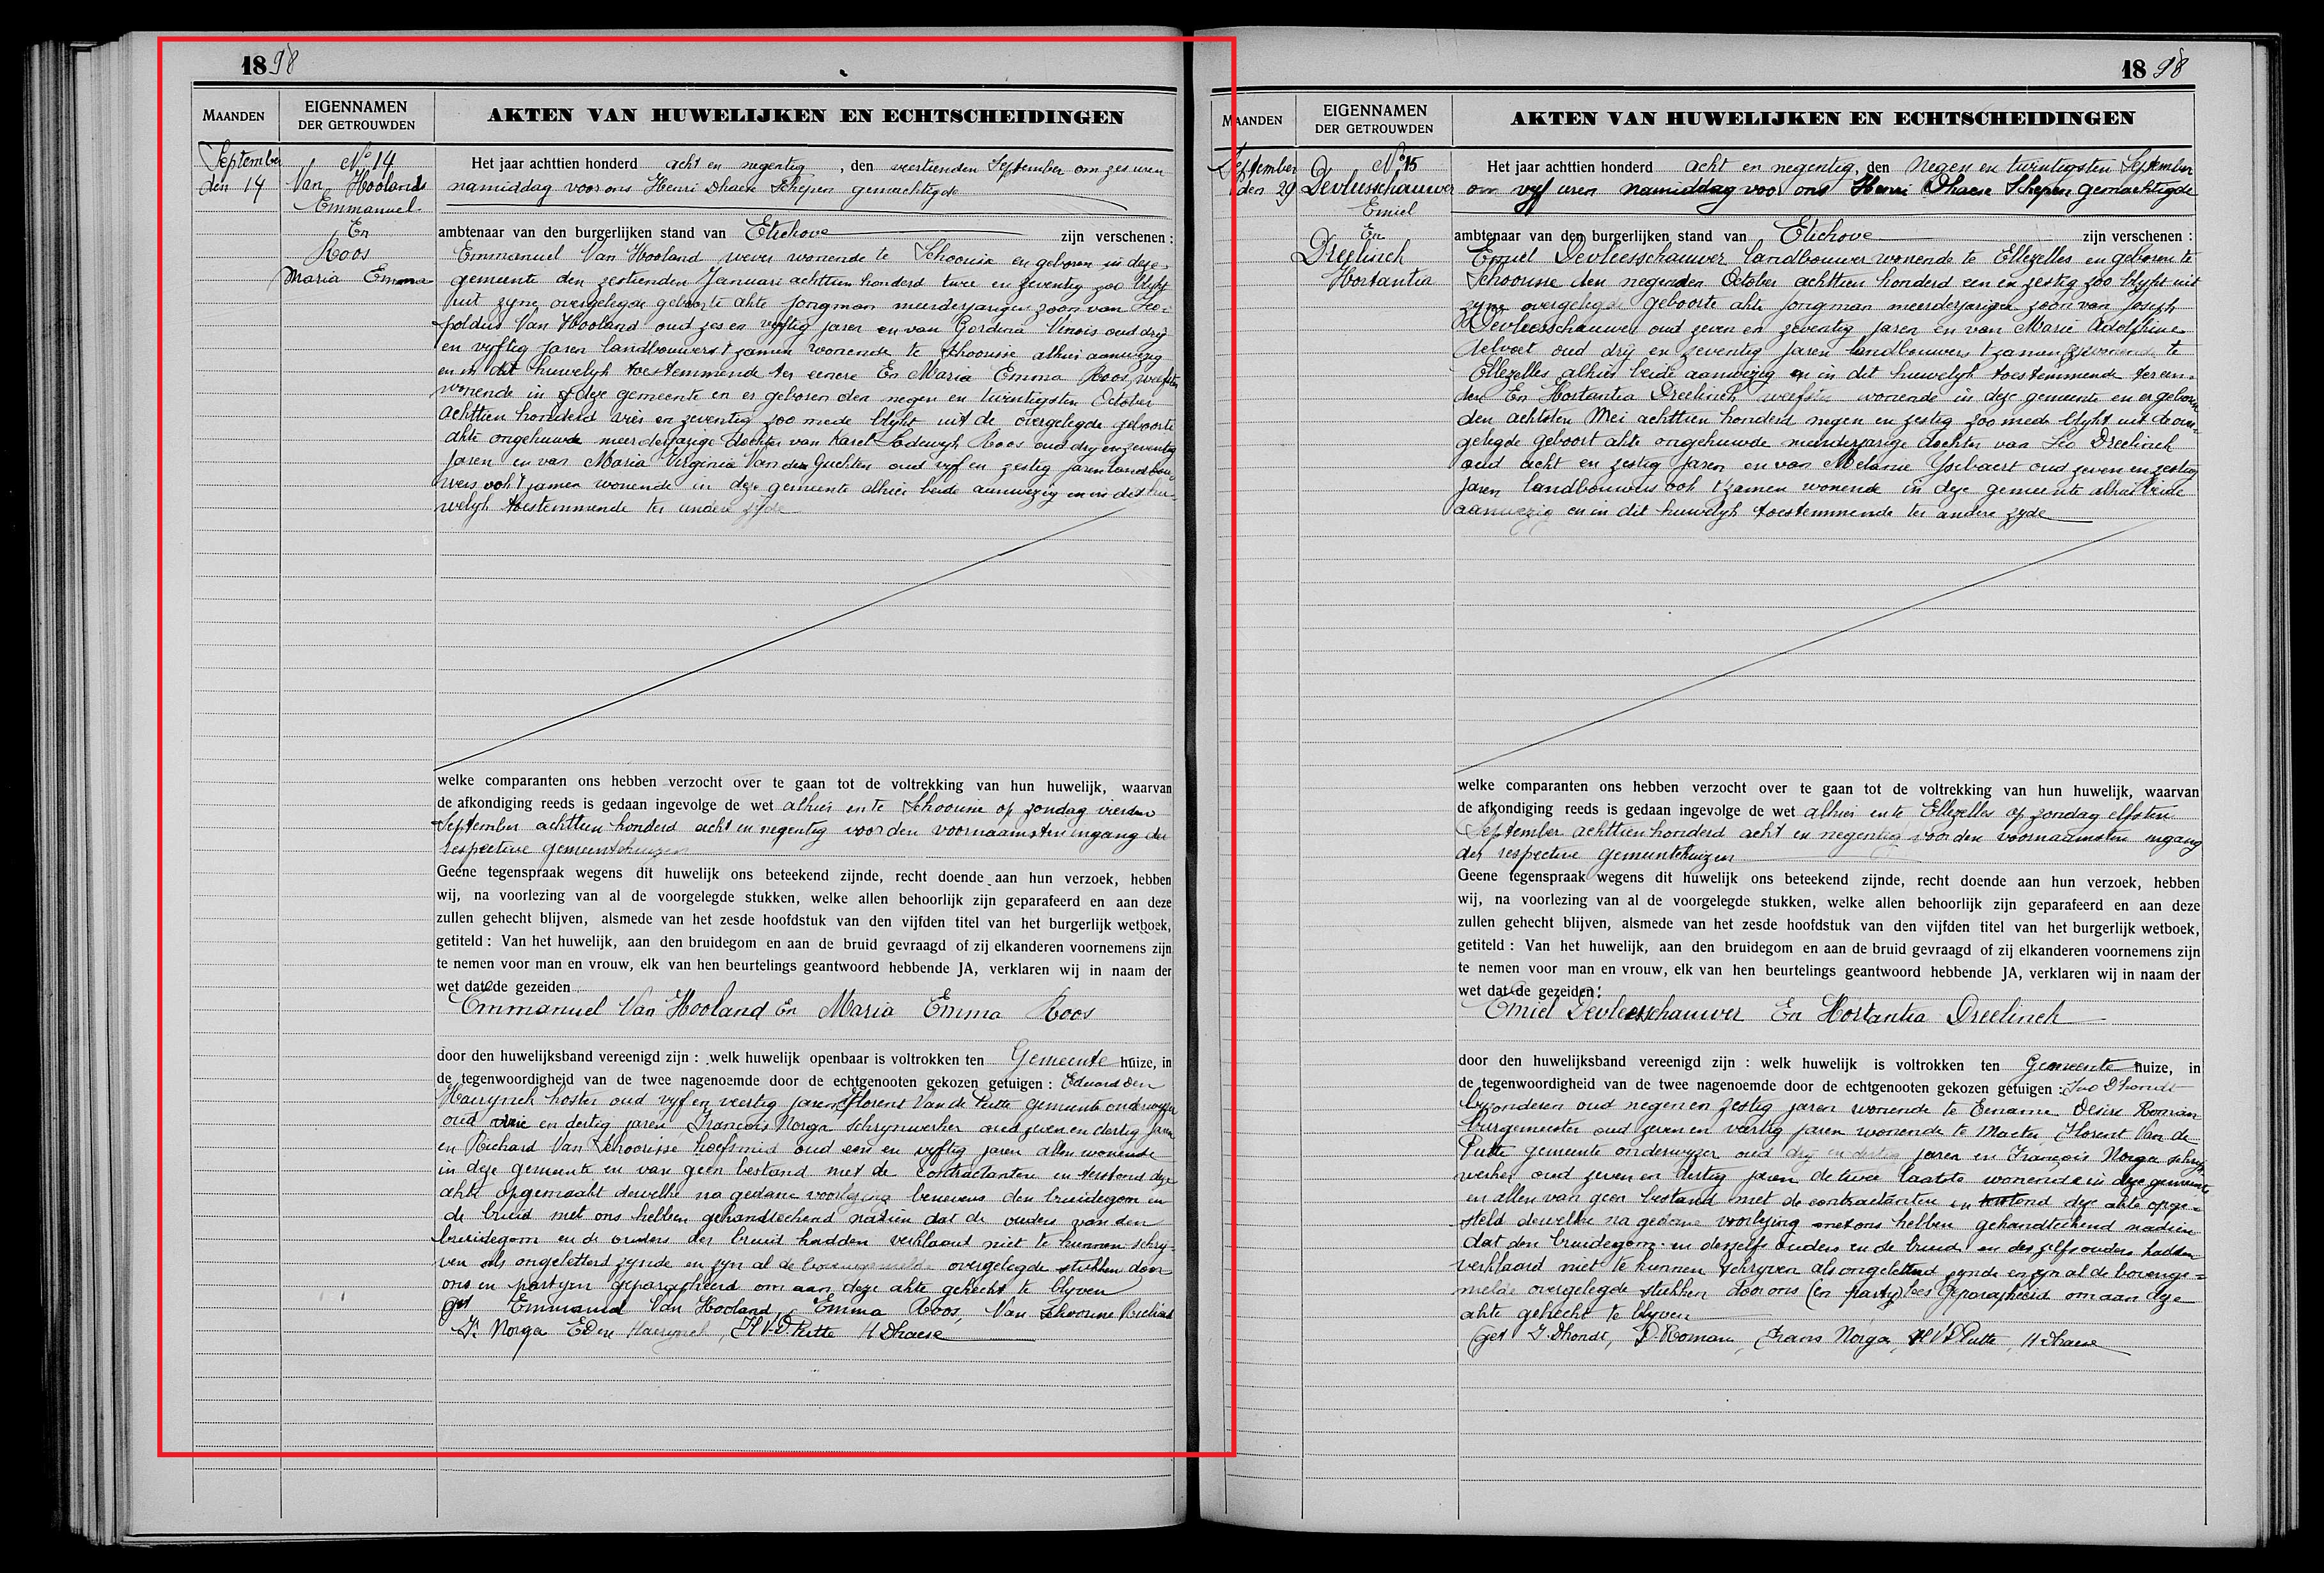 1898
MAANDEN
EIGENNAMEN
DER GETROUWDEN
AKTEN VAN HUWELIJKEN EN ECHTSCHEIDINGEN
September
den 14
No 14
Van Hoolands
Emmanuel
En
Roos
Maria Emma
Het jaar achttien honderd acht en negentig, den veertienden September om zes uren
namiddag voor ons Henri Dhaese Schepen gemachtigde
ambtenaar van den burgerlijken stand van Etichove zijn verschenen :
Emmanuel Van Hooland wever wonende te Schoorisse en geboren in deze
gemeente den zestienden Januari achttien honderd twee en zeventig zoo blijkt
uit zyne overgelegde geboorte akte jongman meerderjarigen zoon van Leo-
poldus Van Hooland oud zes en vyftig jaren en van Gordina Vinois oud dry
en vyftig jaren landbouwers t zamen wonende te Schoorisse alhier aanwezig
en in dit huwelyk toestemmende ter eenere En Maria Emma Roos weefster
wonende in deze gemeente en er geboren den negen en twintigsten October
achttien honderd vier en zeventig zoo mede blykt uit de overgelegde geboorte
akte ongehuwde meerderjarige dochter van Karel Lodewyk Roos oud dry en zeventig
jaren en van Maria Virginia Van der Guchten oud vyf en zestig jaren landbou-
wers ook t zamen wonende in deze gemeente alhier beide aanwezig en in dit hu-
welyk toestemmende ter andere zyde
welke comparanten ons hebben verzocht over te gaan tot de voltrekking van hun huwelijk, waarvan
de afkondiging reeds is gedaan ingevolge de wet alhier en te Schoorisse op zondag vierden
September achttien honderd acht en negentig voor den voornaamsten ingang der
respective gemeentehuizen
Geene tegenspraak wegens dit huwelijk ons beteekend zijnde, recht doende aan hun verzoek, hebben
wij, na voorlezing van al de voorgelegde stukken, welke allen behoorlijk zijn geparafeerd en aan deze
zullen gehecht blijven, alsmede van het zesde hoofdstuk van den vijfden titel van het burgerlijk wetboek,
getiteld : Van het huwelijk, aan den bruidegom en aan de bruid gevraagd of zij elkanderen voornemens zijn
te nemen voor man en vrouw, elk van hen beurtelings geantwoord hebbende JA, verklaren wij in naam der
wet dat de gezeiden
Emmanuel Van Hooland En Maria Emma Roos
door den huwelijksband vereenigd zijn : welk huwelijk openbaar is voltrokken ten Gemeente huize, in
de tegenwoordigheid van de twee nagenoemde door de echtgenooten gekozen getuigen : Eduard Den
Haerynck koster oud vyf en veertig jaren Florent Van de Putte gemeente onderwyzer
oud drie en dertig jaren, Francois Norga schrynwerker oud zeven en dertig jaren
en Richard Van Schoorisse hoefsmid oud een en vyftig jaren allen wonende
in deze gemeente en van geen bestand met de contractanten en terstond deze
akte opgemaakt dewelke na gedane voorlezing benevens den bruidegom en
de bruid met ons hebben gehandteekend nadien dat de ouders van den
bruidegom en de ouders der bruid hadden verklaard niet te kunnen schry-
ven als ongeletterd zynde en zyn al de bovengemelde overgelegde stukken door
ons en partyen geparapheerd om aan deze akte gehecht te blyven
get Emmanuel Van Hooland, Emma Roos, Van Schoorisse Richard
Fr Norga E Den Haerynck, Fl V D Putte H Dhaese
1898
MAANDEN
EIGENNAMEN
DER GETROUWDEN
AKTEN VAN HUWELIJKEN EN ECHTSCHEIDINGEN
September
den 29
No 15
Devleesschauwer
Emiel
En
Dreelinck
Hortantia
Het jaar achttien honderd acht en negentig, den Negen en twintigsten September
om vyf uren namiddag voor ons Henri Dhaese Schepen gemachtigde
ambtenaar van den burgerlijken stand van Etichove zijn verschenen :
Emiel Devleesschauwer landbouwer wonende te Ellezelles en geboren te
Schoorisse den negenden October achttien honderd een en zestig zoo blykt uit
zyne overgelegde geboorte akte jongman meerderjarigen zoon van Joseph
Devleesschauwer oud zeven en zeventig jaren en van Marie Adolphine
Delvoet oud dry en zeventig jaren landbouwers t zamen wonende te
Ellezelles alhier beide aanwezig en in dit huwelyk toestemmende ter een-
der En Hortantia Dreelinck weefster wonende in deze gemeente en er geboren
den achtsten Mei achttien honderd negen en zestig zoo mede blykt uit de over-
gelegde geboort akte ongehuwde meerderjarige dochter van Leo Dreelinck
oud acht en zestig jaren en van Melanie Ysebaert oud zeven en zestig
jaren landbouwers ook t zamen wonende in deze gemeente alhier beide
aanwezig en in dit huwelyk toestemmende ter andere zyde
welke comparanten ons hebben verzocht over te gaan tot de voltrekking van hun huwelijk, waarvan
de afkondiging reeds is gedaan ingevolge de wet alhier en te Ellezelles op zondag elfsten
September achttien honderd acht en negentig voor den voornaamsten ingang
der respective gemeentehuizen
Geene tegenspraak wegens dit huwelijk ons beteekend zijnde, recht doende aan hun verzoek, hebben
wij, na voorlezing van al de voorgelegde stukken, welke allen behoorlijk zijn geparafeerd en aan deze
zullen gehecht blijven, alsmede van het zesde hoofdstuk van den vijfden titel van het burgerlijk wetboek,
getiteld : Van het huwelijk, aan den bruidegom en aan de bruid gevraagd of zij elkanderen voornemens zijn
te nemen voor man en vrouw, elk van hen beurtelings geantwoord hebbende JA, verklaren wij in naam der
wet dat de gezeiden:
Emiel Devleesschauwer En Hortantia Dreelinck
door den huwelijksband vereenigd zijn : welk huwelijk is voltrokken ten Gemeente huize, in
de tegenwoordigheid van de twee nagenoemde door de echtgenooten gekozen getuigen : Ivo Dhondt
byzonderen oud negen en zestig jaren wonende te Ename Desire Roman
burgemeester oud zeven en veertig jaren wonende te Mater Florent Van de
Putte gemeente onderwyzer oud dry en dertig jaren en François Norga schryn-
werker oud zeven en dertig jaren de twee laatste wonende in deze gemeente
en allen van geen bestand met de contractanten en terstond deze akte opge-
steld dewelke na gedane voorlezing met ons hebben gehandteekend nadien
dat den bruidegom en deszelfs ouders en de bruid en deszelfs ouders hadden
verklaard niet te kunnen schryven als ongeletterd zynde en zyn al de bovenge-
melde overgelegde stukken door ons (en party)ees geparapheerd om aan deze
akte gehecht te blyven
(get I. Dhondt, D. Roman, Frans Norga, Fl V D Putte, H Dhaese